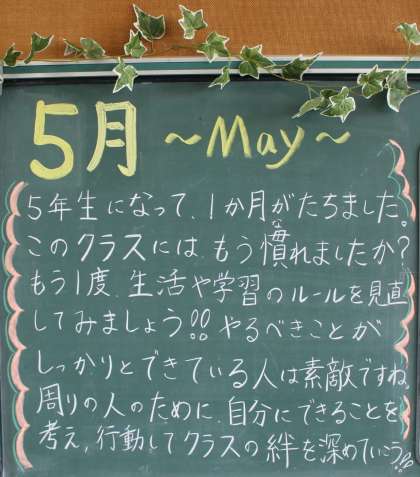 5月 ~May~
5年生になって、1か月がたちました。
このクラスには、もう慣れましたか?
もう1度、生活や学習のルールを見直
してみましょう!! やるべきことが
しっかりとできている人は素敵ですね
周りの人のために、自分にできることを
考え、行動してクラスの絆を深めていこう!!